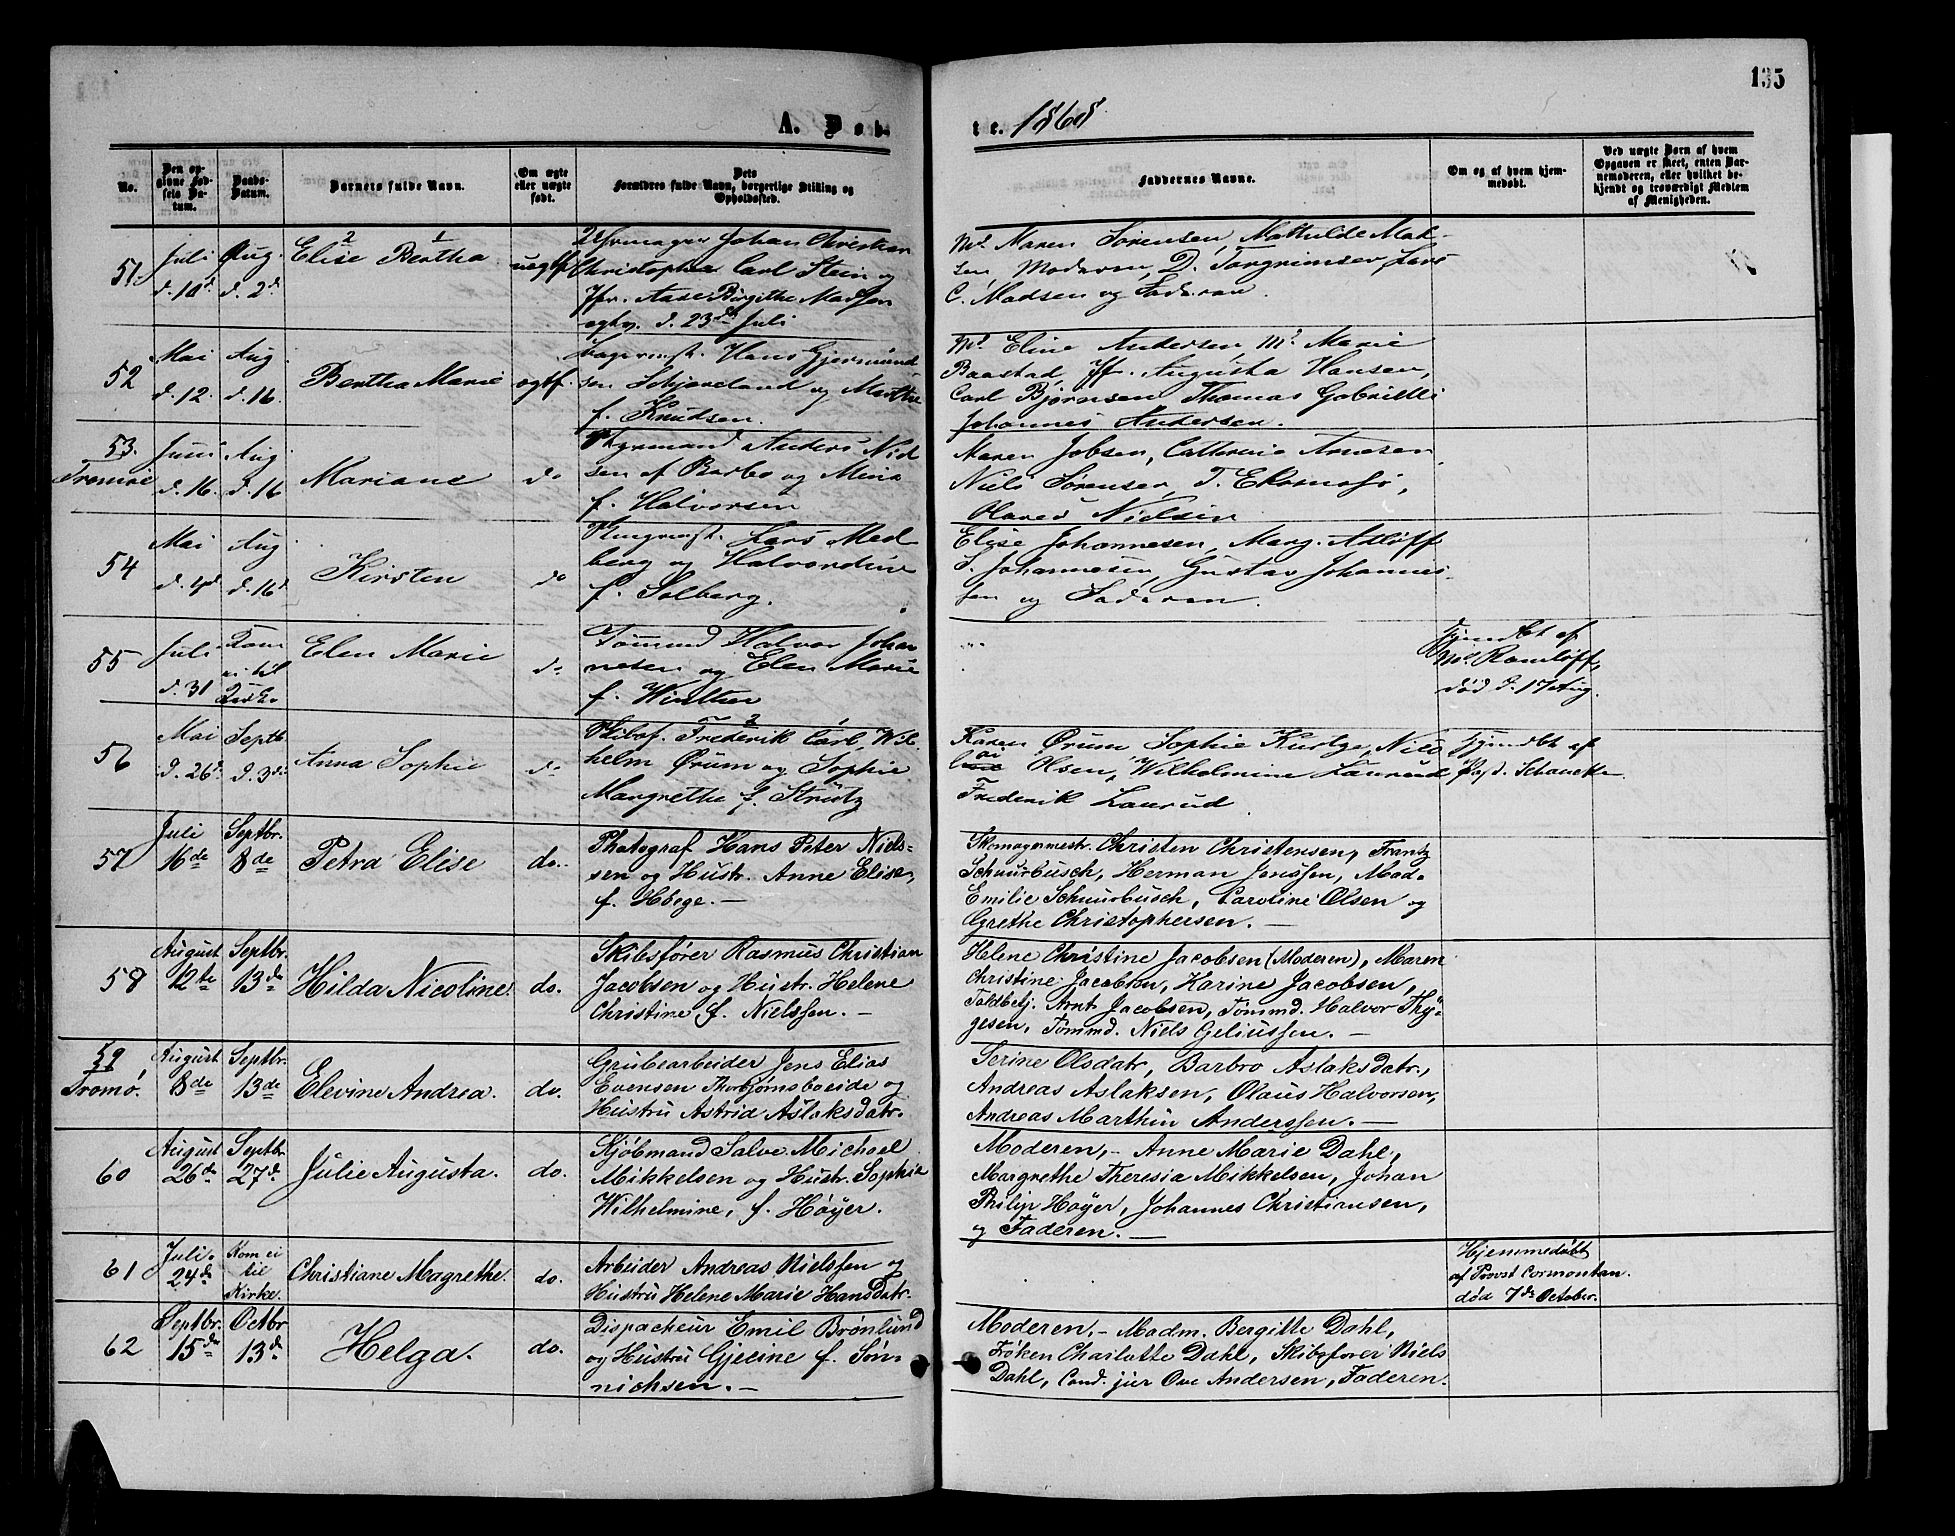 135
A. Døb-
te. 1868
No.
Den op-
givne Fød-
sels Da-
tum.
Daabs-
Datum.
Barnets fulde Navn.
Om ægte
eller uægte
født.
Dets
Forældres fulde Navn, borgerlige Stilling og
Opholdssted.
Faddernes Navne.
Om og af hvem hjem-
medøbt.
Ved uægte Børn af hvem
Opgaven er skeet, enten Bar-
nemoderen, eller hvilket be-
kjendt og troværdigt Medlem
af Menigheden.
51.
Juli
d. 10d
Aug.
d. 2d
2 1
Elise Bertha
uegtf.
Uhrmager Johan Christian
Christopher Carl Stein og
Jfr. Aase Birgithe Madsen
egtv. d. 23de Juli
Md. Maren Sørensen, Mathilde Mad-
sen Moderen, D. Torgrimsen, Lars
C. Madsen og Faderen.
52
Mai
d. 12.
Aug.
d. 16.
Bertha Marie
egtf.
Bagermst. Hans Gjermund-
sen Skjæveland og Marthe
f. Knudsen.
Md. Eline Andersen, Md. Marie
Baastad, Jfr. Augusta Hansen,
Carl Bjørnsen Thomas Gabrielli
Johannes Andersen.
53.
Tromøe
Juni
d. 16.
Aug.
d. 16
Mariane
do
Styrmand Anders Niel
sen af Barbo og Mina
f. Halvorsen
Maren Jobsen, Cathrine Arnesen,
Niels Sørensen, T. Ekornsø,
Olaves Nielsen
54
Mai
d. 4d
Aug
d. 16d
Kirsten
do
Lars Med
berg og Halvordine
f. Solberg.
Elise Johannesen, Marg. Adloff
S. Johannesen, Gustav Johannes-
sen og Faderen.
55
Juli
d. 31
Kom
ei til
Kirke
Elen Marie
do
Tømmd Halvor Johan
nesen og Elen Marie
f. Winther
Hjemdbt af
Md. Ramløff,
død d. 17 Aug.
56
Mai
d. 26d
Septb
d. 3de
Anna Sophie
do
2 1
Skibsf. Frederik Carl Wil-
helm Ørum og Sophie
Margrethe f. Strütz
Karen Ørum Sophie Kurtze, Nico
lai Olsen, Wilhelmine Laurud
Frederik Laurud
Hjemdbt af
Kapt. Schancke
57
Juli
16de
Septbr.
8de
Petra Elise
do.
Photograf Hans Peter Niels-
sen og Hustr. Anne Elise,
f. Hbege. —
Skomagermestr. Christen Christensen, Frantz
Schnurbusch, Herman Janssen, Mad.
Emilie Schnurbusch, Caroline Olsen og
Grethe Christophersen. —
58
August
12te
Septbr.
13de
Hilda Nicoline.
do.
Skibsfører Rasmus Christian
Jacobsen og Hustr. Helene
Christine, f. Nielssen. —
Helene Christine Jacobsen (Moderen), Maren
Christine Jacobsen, Karine Jacobsen,
Toldbetj. Arnt Jacobsen, Tømmd. Halvor Thy-
gesen, Tømmd. Niels Geliussen. —
59
Tromø.
August
8de
Septbr.
13de
Elevine Andrea.
do.
Grubearbeider Jens Elias
Evensen Thorbjørnsboeide og
Hustru Astrid Aslaksdatr.
Serine Olsdatr, Barbro Aslaksdatr.,
Andreas Aslaksen, Olaus Halvorsen,
Andreas Marthin Anderssen. —
60
August
26de
Septbr
27de
Julie Augusta.
do.
Kjøbmand Salve Michael
Mikkelsen og Hustr. Sophie
Wilhelmine, f. Høyer.
Moderen, – Anne Marie Dahl,
Margrethe Theresia Mikkelsen, Johan
Philip Høyer, Johannes Christiansen,
og Faderen. —
61
Juli.
24de
Kom ei
til
Kirke.
Christiane Magrethe.
do.
Arbeider Andreas Nielssen og
Hustru Helene Marie Hansdatr.
Hjemmedøbt
af Provst Cormontan.
død 7de October.
62
Septbr.
15de
Octbr
13de
Helga.
do.
Dispacheur Emil Brønlund
og Hustru Gjecine f. Søn-
nichsen. —
Moderen. – Madm. Bergitte Dahl,
Frøken Charlotte Dahl, Skibsfører Niels
Dahl, Cand. jur Ove Andersen, Faderen.